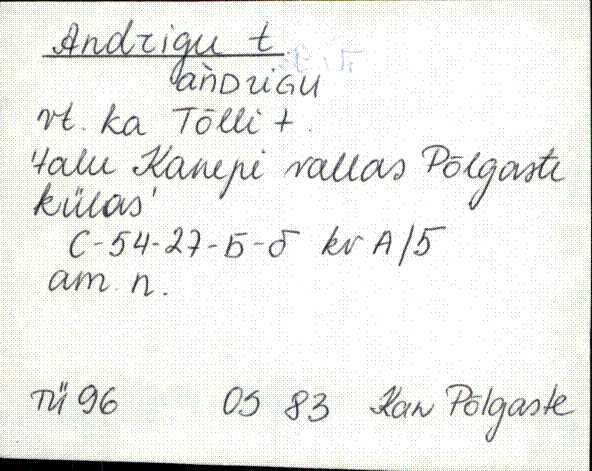 Andrigu t.
àǹDriGU
vt. ka Tõlli t.
'talu Kanepi vallas Põlgaste
külas'
C-54-27-Б-б kv A/5
am. n.
TÜ 96 OS 83 Kan Põlgaste